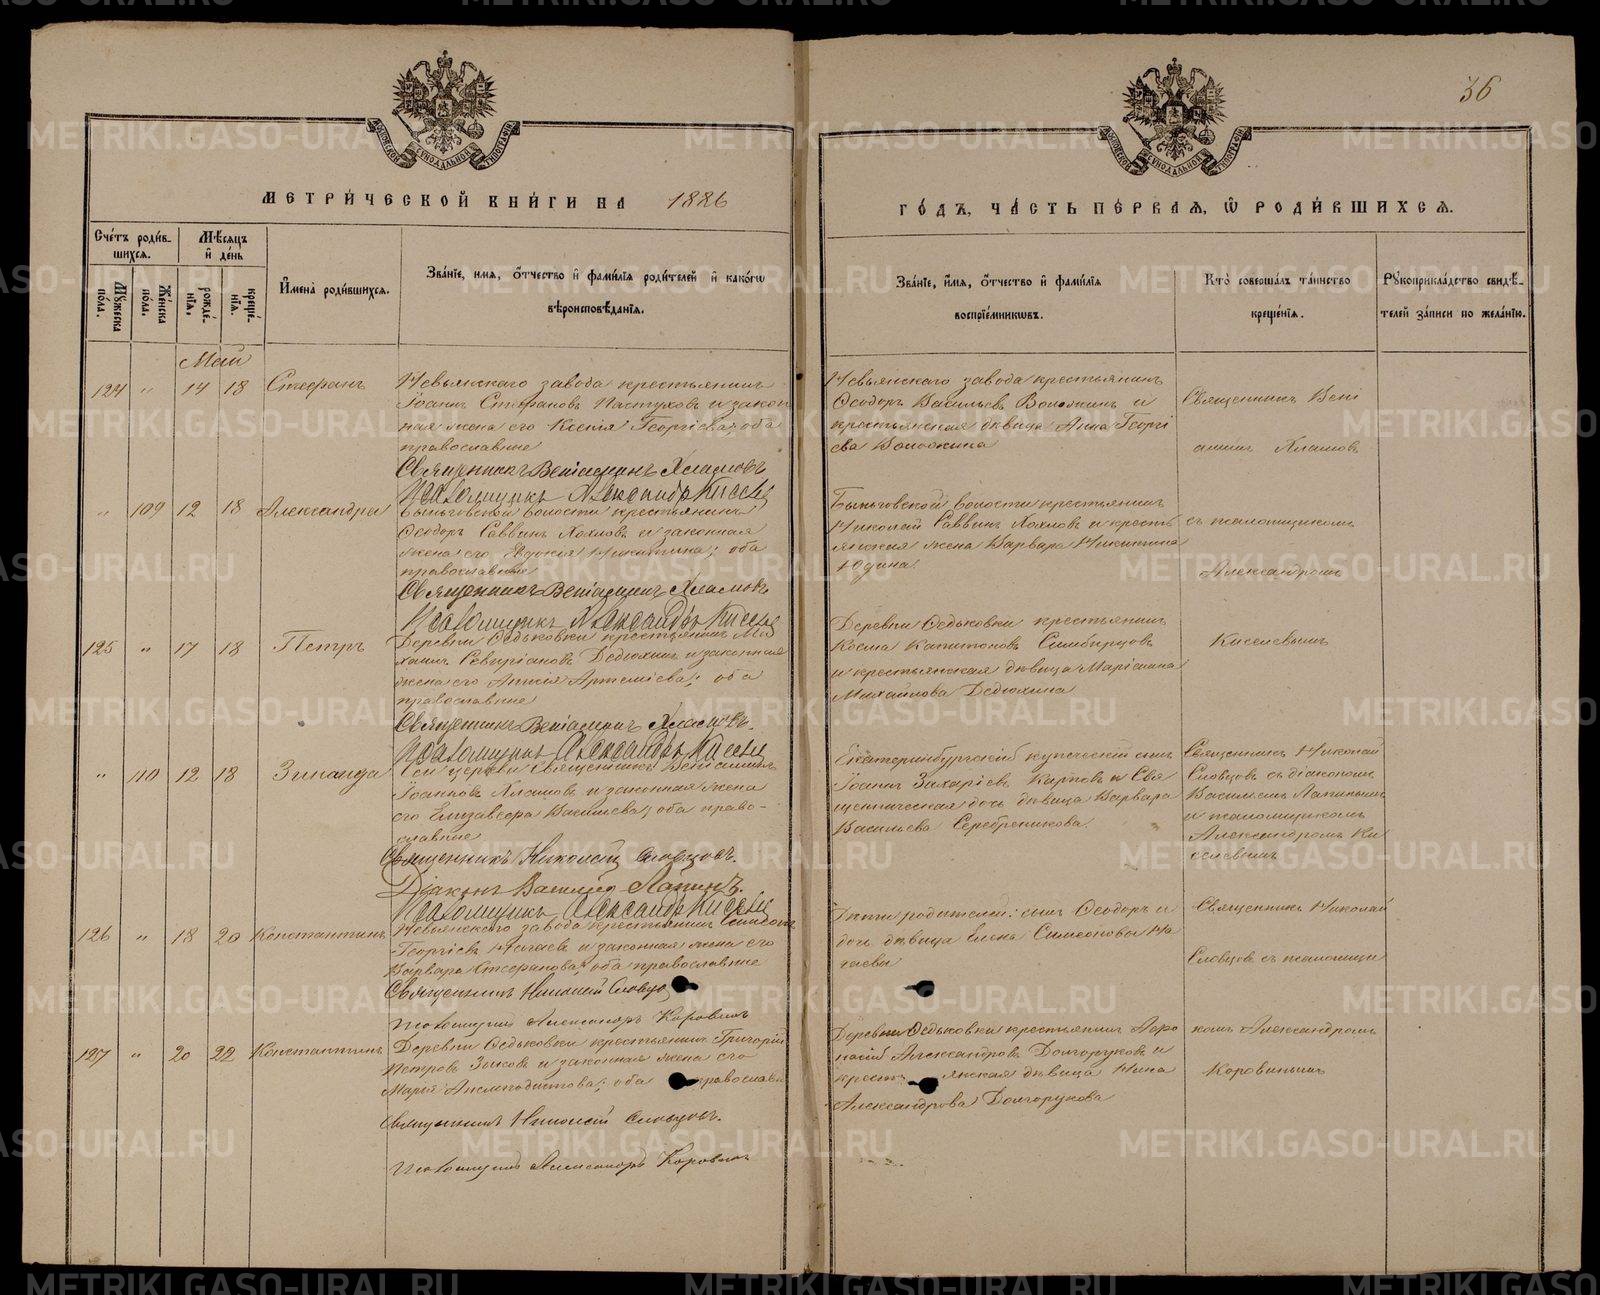 36
МЕТРИ́ЧЕСКОЙ КНИ́ГИ НА 1886
ГО́ДЪ, ЧА́СТЬ ПЕ́РВАѦ, Ѡ҆ РОДИ́ВШИХСѦ.
Сче́тъ роди́в-
шихсѧ.
Мꙋ́жеска
по́ла.
Же́нска
по́ла.
Мѣ́сѧцъ
и҆ де́нь
рожде́-
нїѧ.
креще́-
нїѧ.
И҆мена̀ роди́вшихсѧ.
Зва́нїе, имѧ, о҆́тчество и҆ фами́лїѧ роди́телей и҆ како́гѡ
вѣроисповѣ́данїѧ.
Зва́нїе, и҆́мѧ, о҆́тчество и҆ фами́лїѧ
воспрїе́мникѡвъ.
Кто̀ соверша́лъ та́инство
креще́нїѧ.
Рꙋкоприкла́дство свидѣ́-
телей за́писи по жела́нїю.
Май
124 " 14 18 Стефанъ
Невьянскаго завода крестьянинъ
Іоаннъ Стефановъ Пастуховъ и закон
ная жена его Ксенія Георгіева; оба
православные
Священникъ Веніаминъ Хламовъ
Псаломщикъ Александръ Киселевъ
Невьянскаго завода крестьянинъ
Ѳеодоръ Васильевъ Волоскинъ и
крестьянская дѣвица Анна Георгі
ева
Священникъ Вені
аминъ Хламовъ
" 109 12 18 Александра
Быньговской волости крестьянинъ
Ѳеодоръ Саввинъ Хохловъ и законная
жена его Евдокія Никитина; оба
православные
Священникъ Веніаминъ Хламовъ
Псаломщикъ Александръ Киселевъ
Быньговской волости крестьянинъ
Николай Саввинъ Хохловъ и кресть
янская жена Варвара Никитина
Юдина.
съ псаломщикомъ
Александромъ
125 " 17 18 Петръ
Деревни Ѳедьковки крестьянинъ Ми
хаилъ Севиріановъ Дедюхинъ и законная
жена его Артеміева; оба
православные
Священникъ Веніаминъ Хламовъ
Псаломщикъ Александръ Киселевъ
Деревни Ѳедьковки крестьянинъ
Косма Капитоновъ Симбирцовъ
и крестьянская дѣвица Маріанна
Михайлова Дедюхина
Киселевымъ
" 110 12 18 Зинаида
Сей церкви Священникъ Веніаминъ
Іоанновъ Хламовъ и законная жена
его Елизавета Васильева; оба право-
славные
Священникъ Николай Словцовъ.
Діаконъ Василій Лапинъ.
Псаломщикъ Александръ Киселевъ
Екатеринбургскій купеческій сынъ
Іоаннъ Захаріевъ Карповъ и Свя
щенническая дочь дѣвица Варвара
Васильева Серебреникова.
Священникъ Николай
Словцовъ съ діакономъ
Василіемъ Лапинымъ
и псаломщикомъ
Александромъ Ки
селевымъ
126 " 18 20 Константинъ
Невьянскаго завода крестьянинъ Симеонъ
Георгіевъ Нагаевъ и законная жена его
Варвара Стефанова; оба православные
Священникъ Николай Словцо
Псаломщикъ Александръ Коровинъ
Дѣти родителей: сынъ Ѳеодоръ и
дочь дѣвица Елена Симеоновы На
гаевы
Священникъ Николай
Словцовъ съ псаломщи
127 " 20 22 Константинъ
Деревни Ѳедьковки крестьянинъ Григорій
Петровъ Зыковъ и законная жена его
Марія; оба православн
Священникъ Николай Словцовъ.
Псаломщикъ Александръ Коровинъ
Деревни Ѳедьковки крестьянинъ Аѳа
насій Александровъ Долгоруковъ и
кресть янская дѣвица Нина
Александрова Долгорукова
комъ Александромъ
Коровинымъ
METRIKI.GASO-URAL.RU